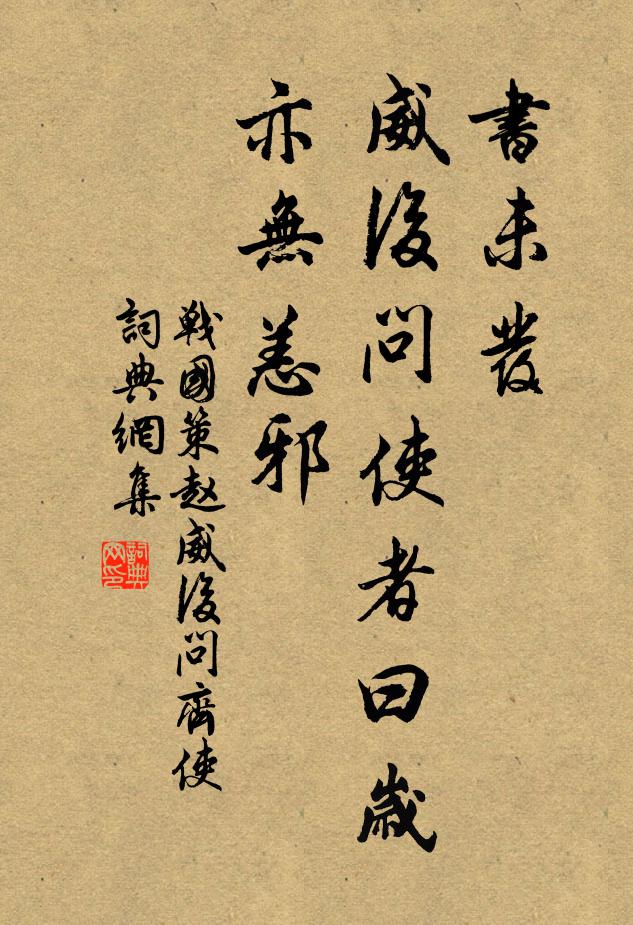 書未發
威後問使者曰歲
亦無恙邪
戰國策赵威後問齊使
詞典網集
詞典网印